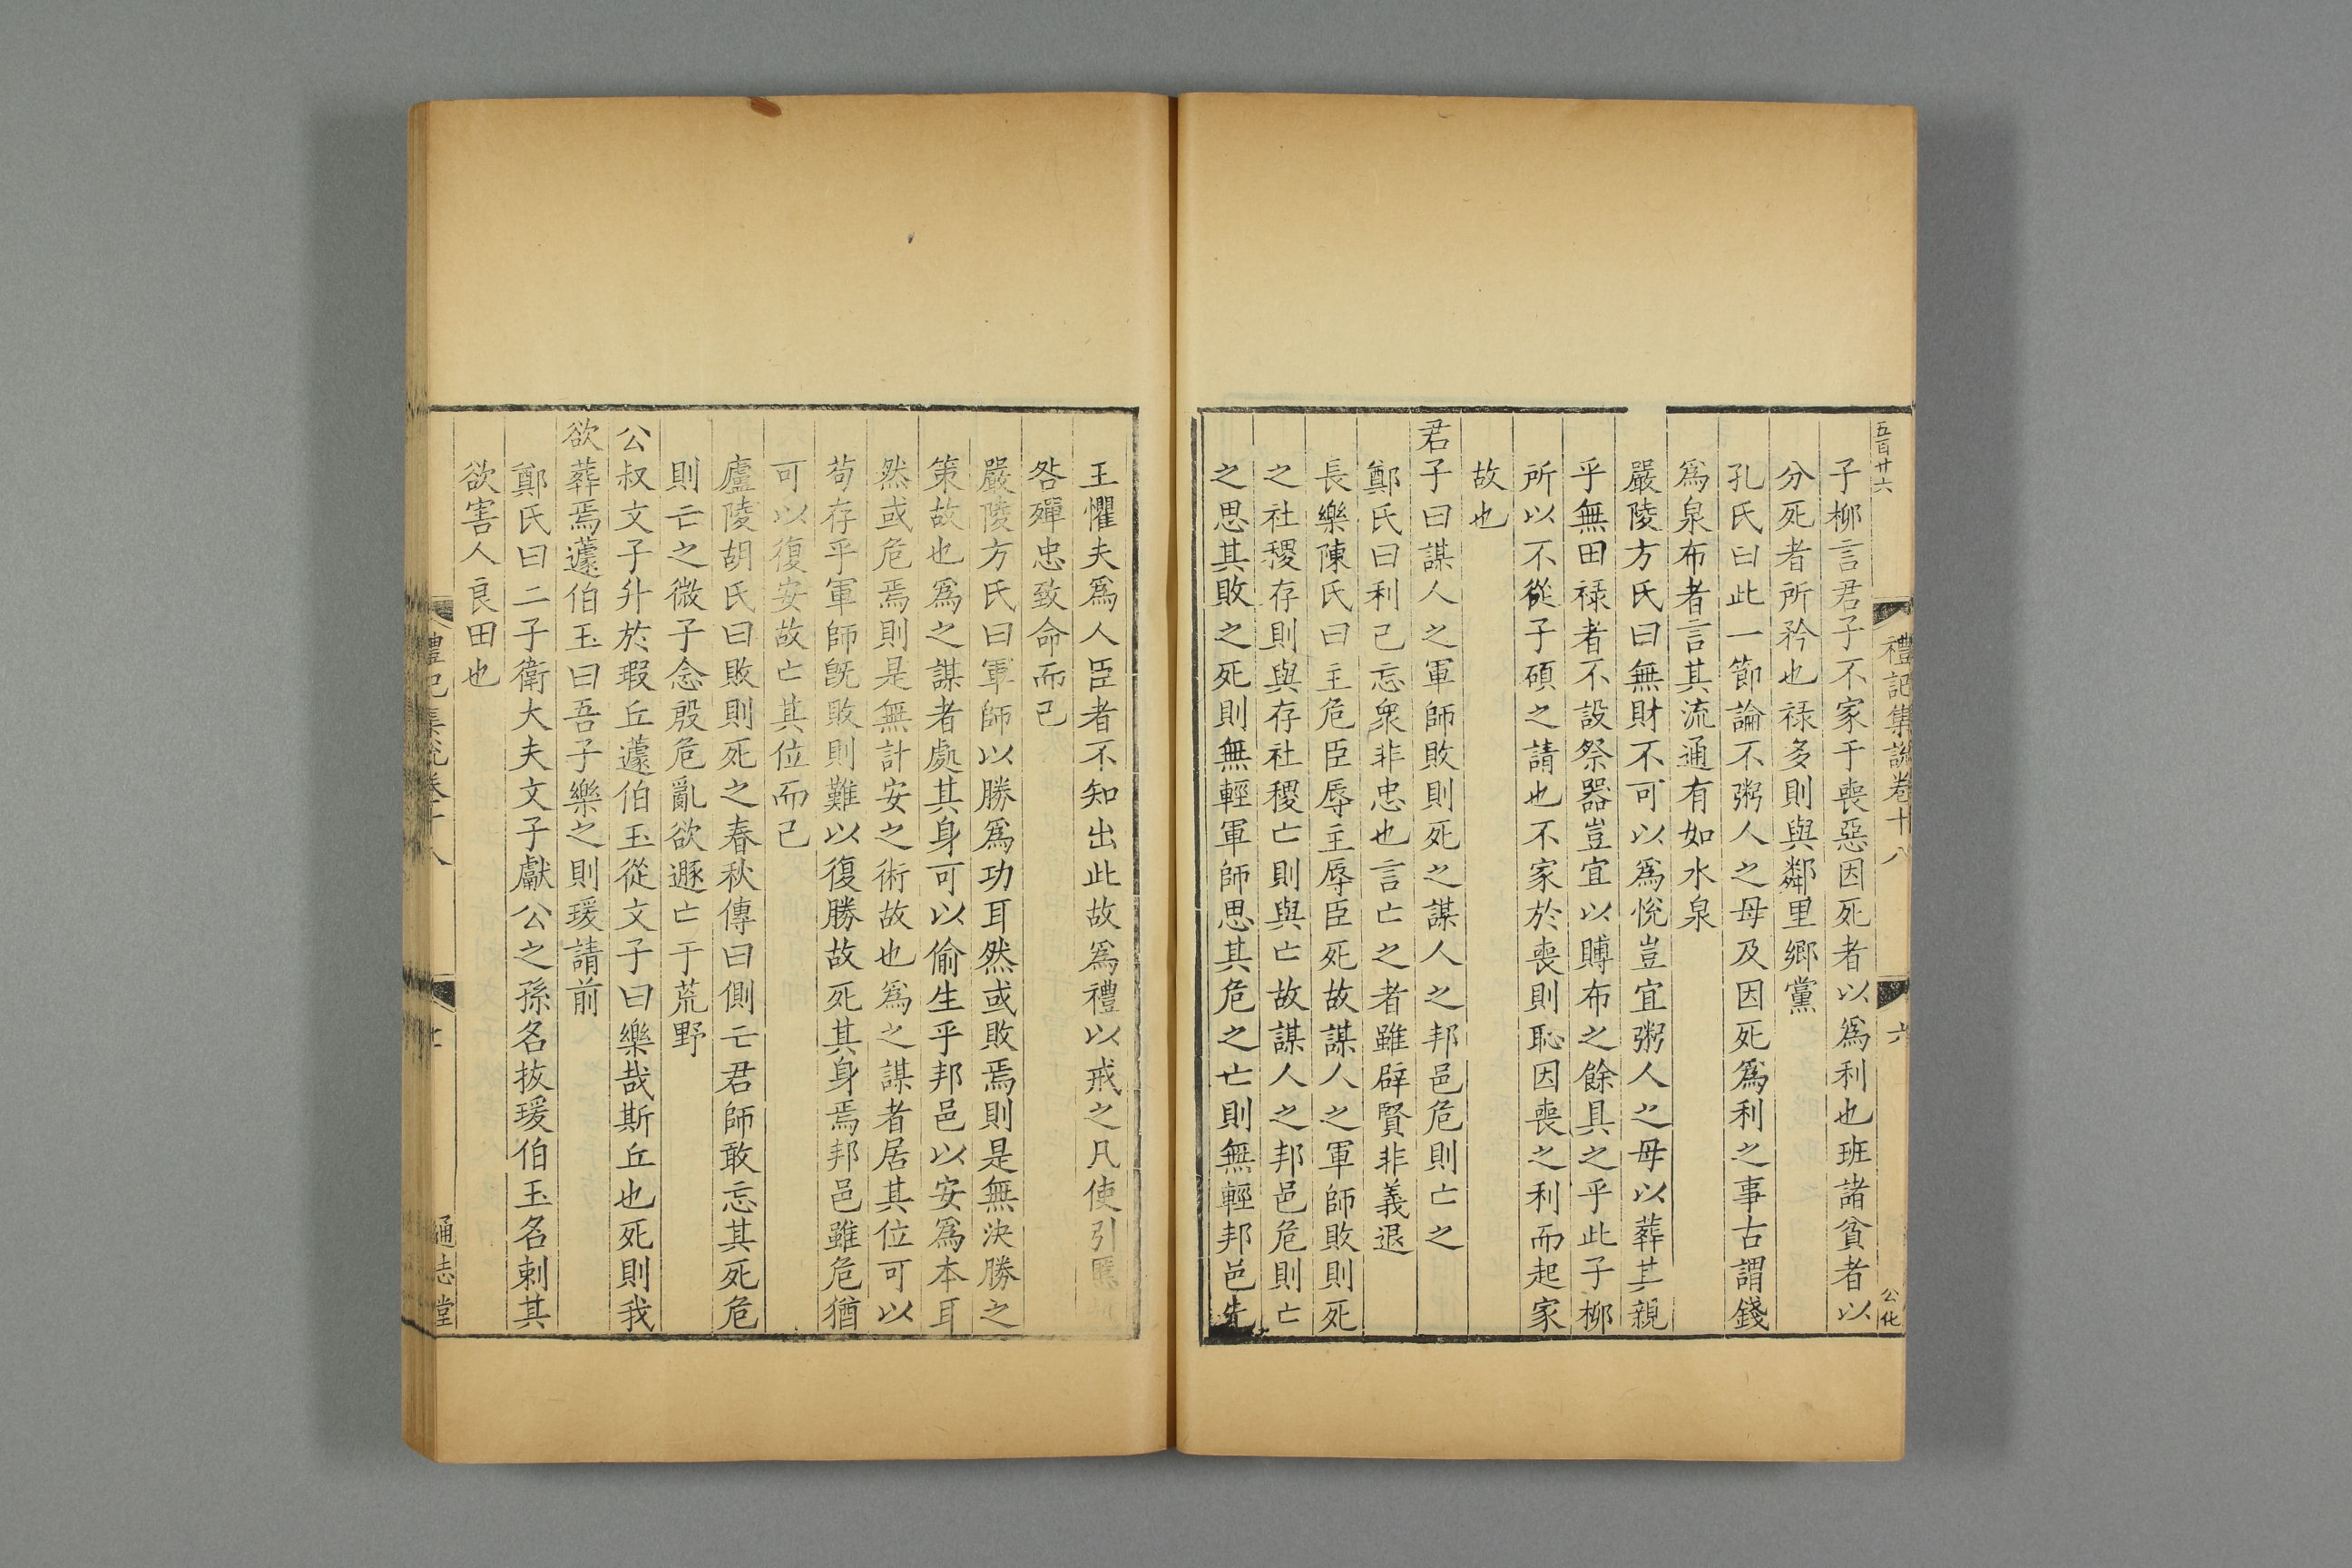 五百廿六
禮記集說卷十八 六 公化
子柳言君子不家于喪惡因死者以爲利也班諸貧者以
分死者所矜也禄多則與鄰里鄉黨
孔氏曰此一節論不粥人之母及因死爲利之事古謂錢
爲泉布者言其流通有如水泉
嚴陵方氏曰無財不可以爲悅豈宜粥人之母以葬其親
乎無田禄者不設祭器豈宜以賻布之餘具之乎此子柳
所以不從子碩之請也不家於喪則恥因喪之利而起家
故也
君子曰謀人之軍師敗則死之謀人之邦邑危則亡之
鄭氏曰利己忘衆非忠也言亡之者雖辟賢非義退
長樂陳氏曰主危臣辱主辱臣死故謀人之軍師敗則死
之社稷存則與存社稷亡則與亡故謀人之邦邑危則亡
之思其敗之死則無輕軍師思其危之亡則無輕邦邑先
王懼夫爲人臣者不知出此故爲禮以戒之凡使引慝
咎殫忠致命而已
嚴陵方氏曰軍師以勝爲功耳然或敗焉則是無決勝之
策故也爲之謀者處其身可以偷生乎邦邑以安爲本耳
然或危焉則是無計安之術故也爲之謀者居其位可以
苟存乎軍師旣敗則難以復勝故死其身焉邦邑雖危猶
可以復安故亡其位而已
廬陵胡氏曰敗則死之春秋傳曰側亡君師敢忘其死危
則亡之微子念殷危亂欲遯亡于荒野
公叔文子升於瑕丘蘧伯玉從文子曰樂哉斯丘也死則我
欲葬焉蘧伯玉曰吾子樂之則瑗請前
鄭氏曰二子衛大夫文子獻公之孫名拔瑗伯玉名刺其
欲害人良田也
禮記集說卷十八 七 通志堂